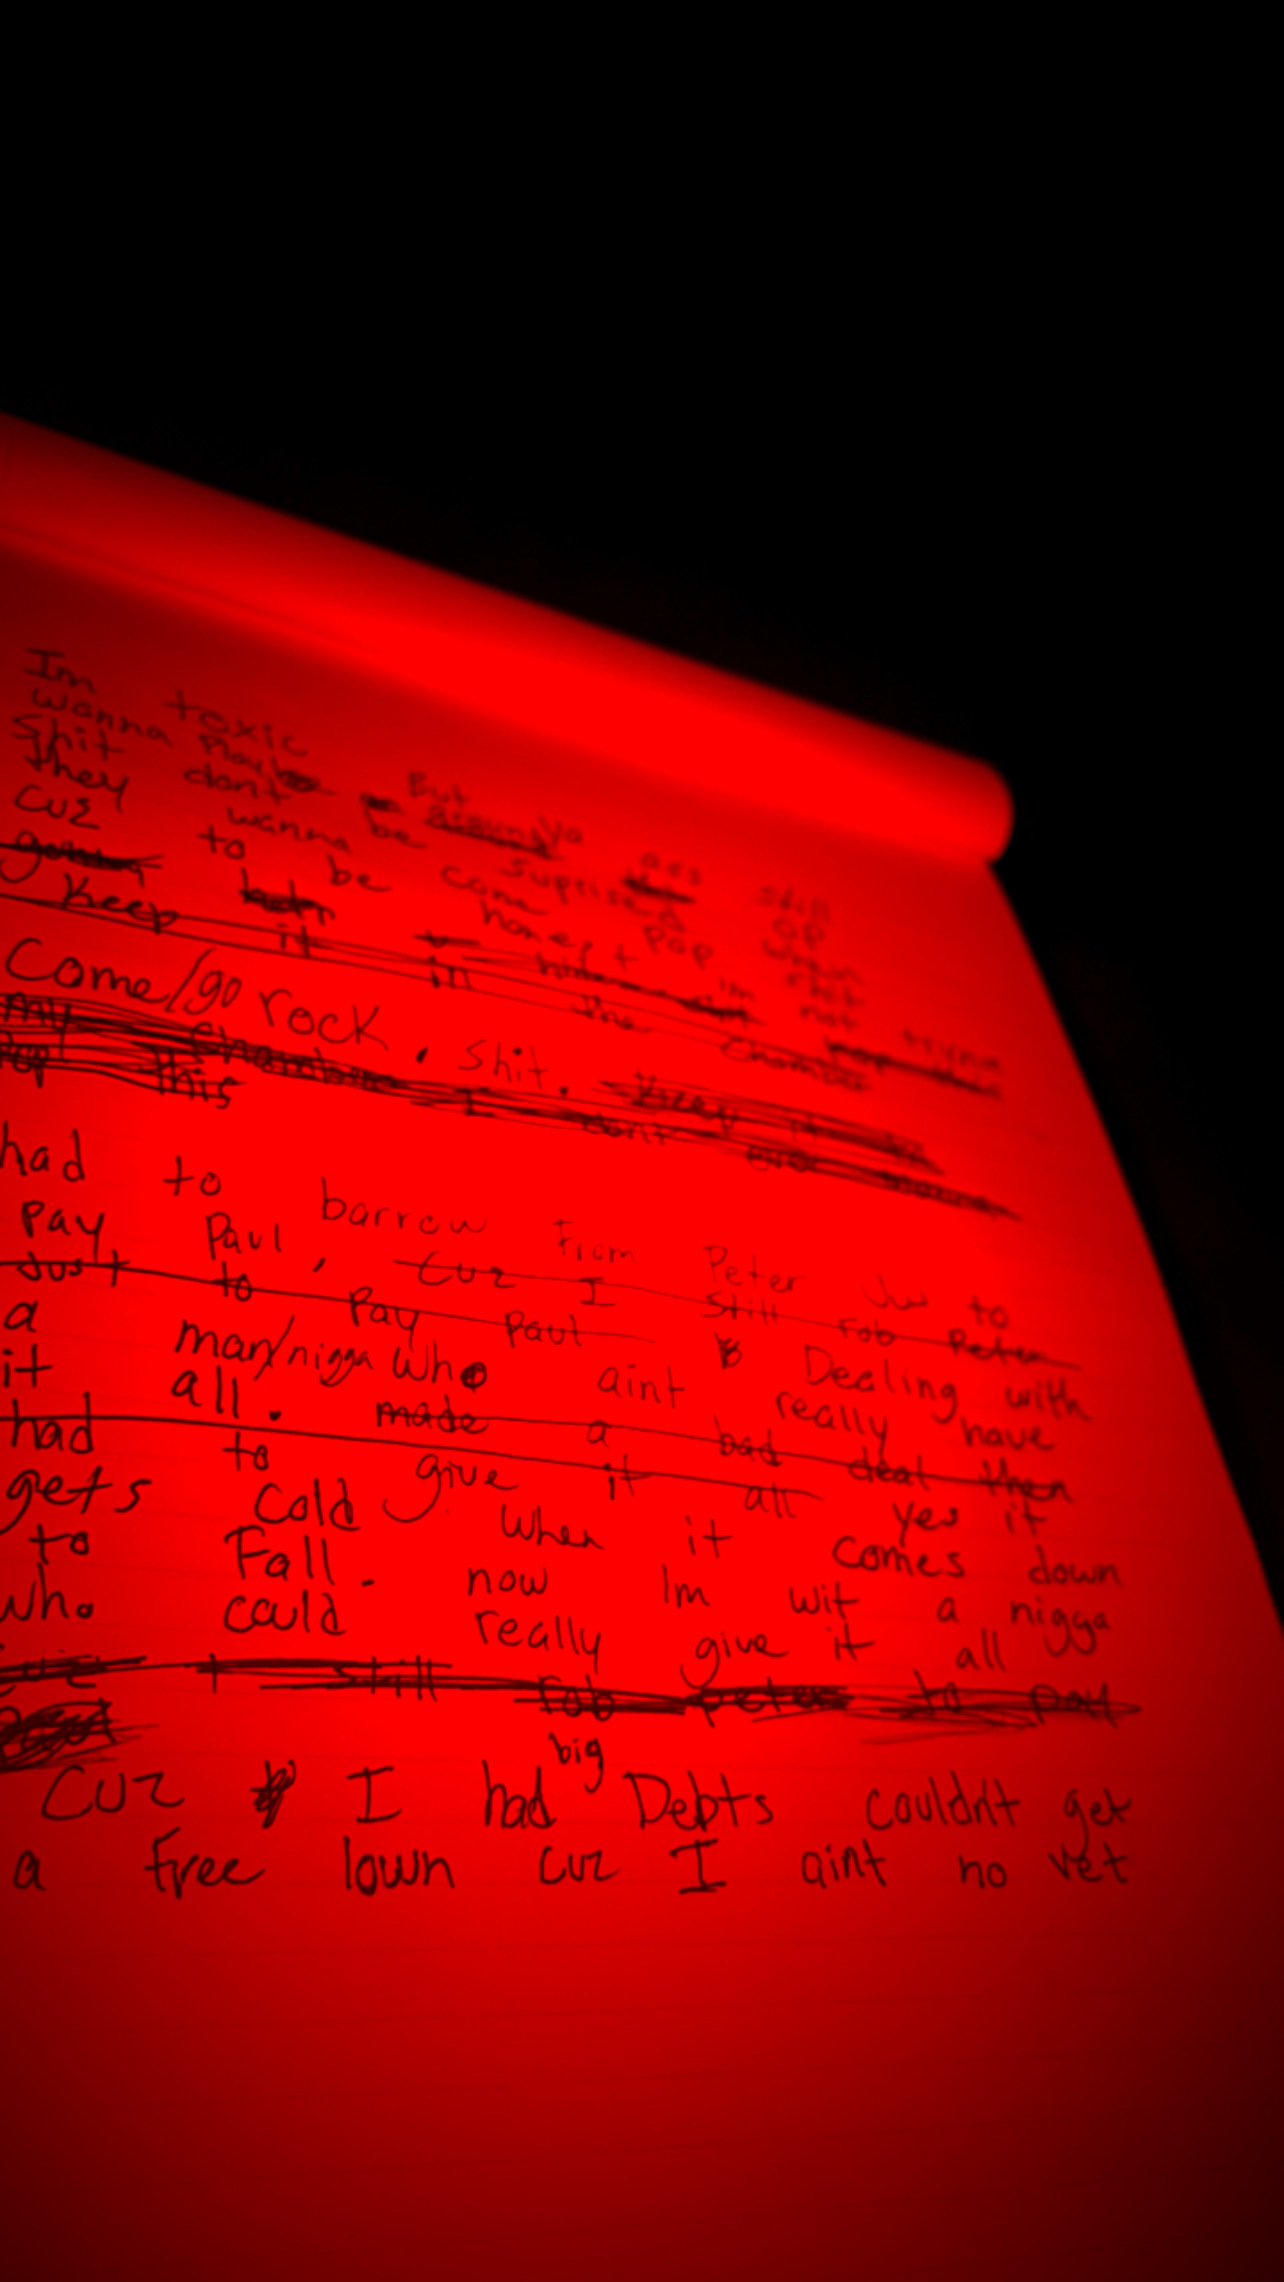 Im toxic But Ya ass still
wanna play
shit dont wanna be suprised when
they wanna come pop shit
cuz to be honest im not tryna
keep it in the chamber
Come/go rock. Shit.
my chamber I dont
Pop this
had to barrow From Peter Jus to
pay Paul, cuz I still rob Peter
Just to Pay Paul Dealing with
a man/nigga who aint really have
it all. made a bad deal then
had to give it all yes it
gets cold when it comes down
to Fall. now Im wit a nigga
who could really give it all
I still rob peter to pay
big
cuz I had Debts couldn't get
a free lown cuz I aint no vet